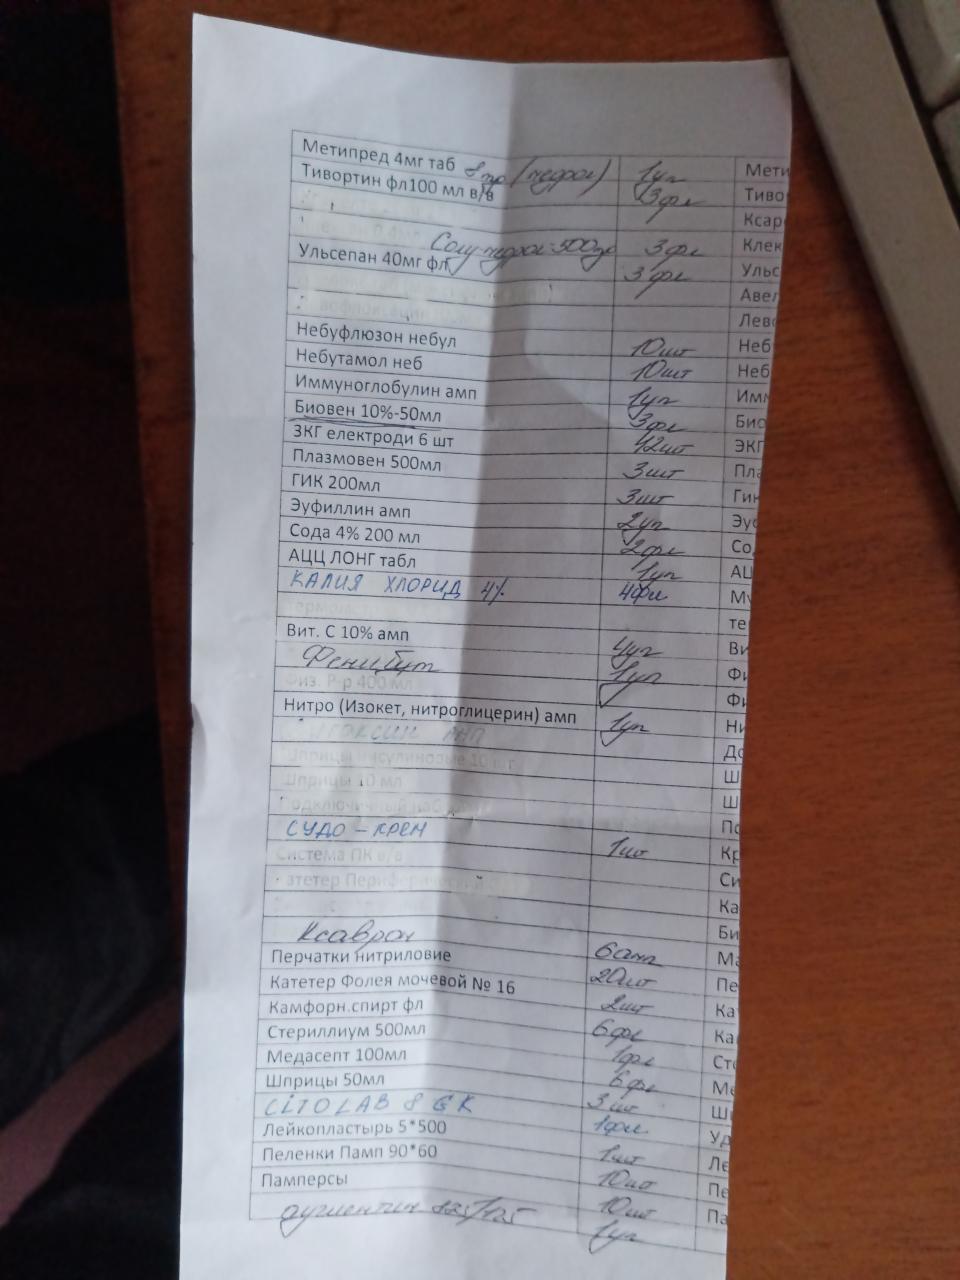 Метипред 4мг таб (медрол) 1уп Мети
Тивортин фл100 мл в/в 3фл Тиво
Ксар
Солу-медрол 500 3фл Клек
Ульсепан 40мг фл 3фл Ульс
Авел
Лево
Небуфлюзон небул 10шт Неб
Небутамол неб 10шт Неб
Иммуноглобулин амп 1уп Имм
Биовен 10%-50мл 3фл Био
ЗКГ електроди 6 шт 42шт ЭКГ
Плазмовен 500мл 3шт Пла
ГИК 200мл 3шт Гик
Эуфиллин амп 2уп Эуф
Сода 4% 200 мл 2фл Со
АЦЦ ЛОНГ табл 1уп АЦ
КАЛИЯ ХЛОРИД 4% 4фл Му
те
Вит. С 10% амп 4уп Ви
Фенибут 1уп Фи
Физ. Р-р 400 мл Фи
Нитро (Изокет, нитроглицерин) амп 1уп Ни
До
Шприцы инсулиновые 10 шт Ш
Шприцы 10 мл Ш
Подключичный По
СУДО-КРЕМ 1шт Кр
Система ПК в/в Си
Катетер Периферический Ка
Би
Ксаврон 6амп Ма
Перчатки нитриловие 20шт Пе
Катетер Фолея мочевой № 16 2шт Ка
Камфорн.спирт фл 6фл Ка
Стериллиум 500мл 1фл Сте
Медасепт 100мл 6фл Ме
Шприцы 50мл 3шт Ш
CITOLAB 8 GK 1фл Уд
Лейкопластырь 5*500 1шт Ле
Пеленки Памп 90*60 10шт Пе
Памперсы 10шт Па
аугментин 825/125 1уп